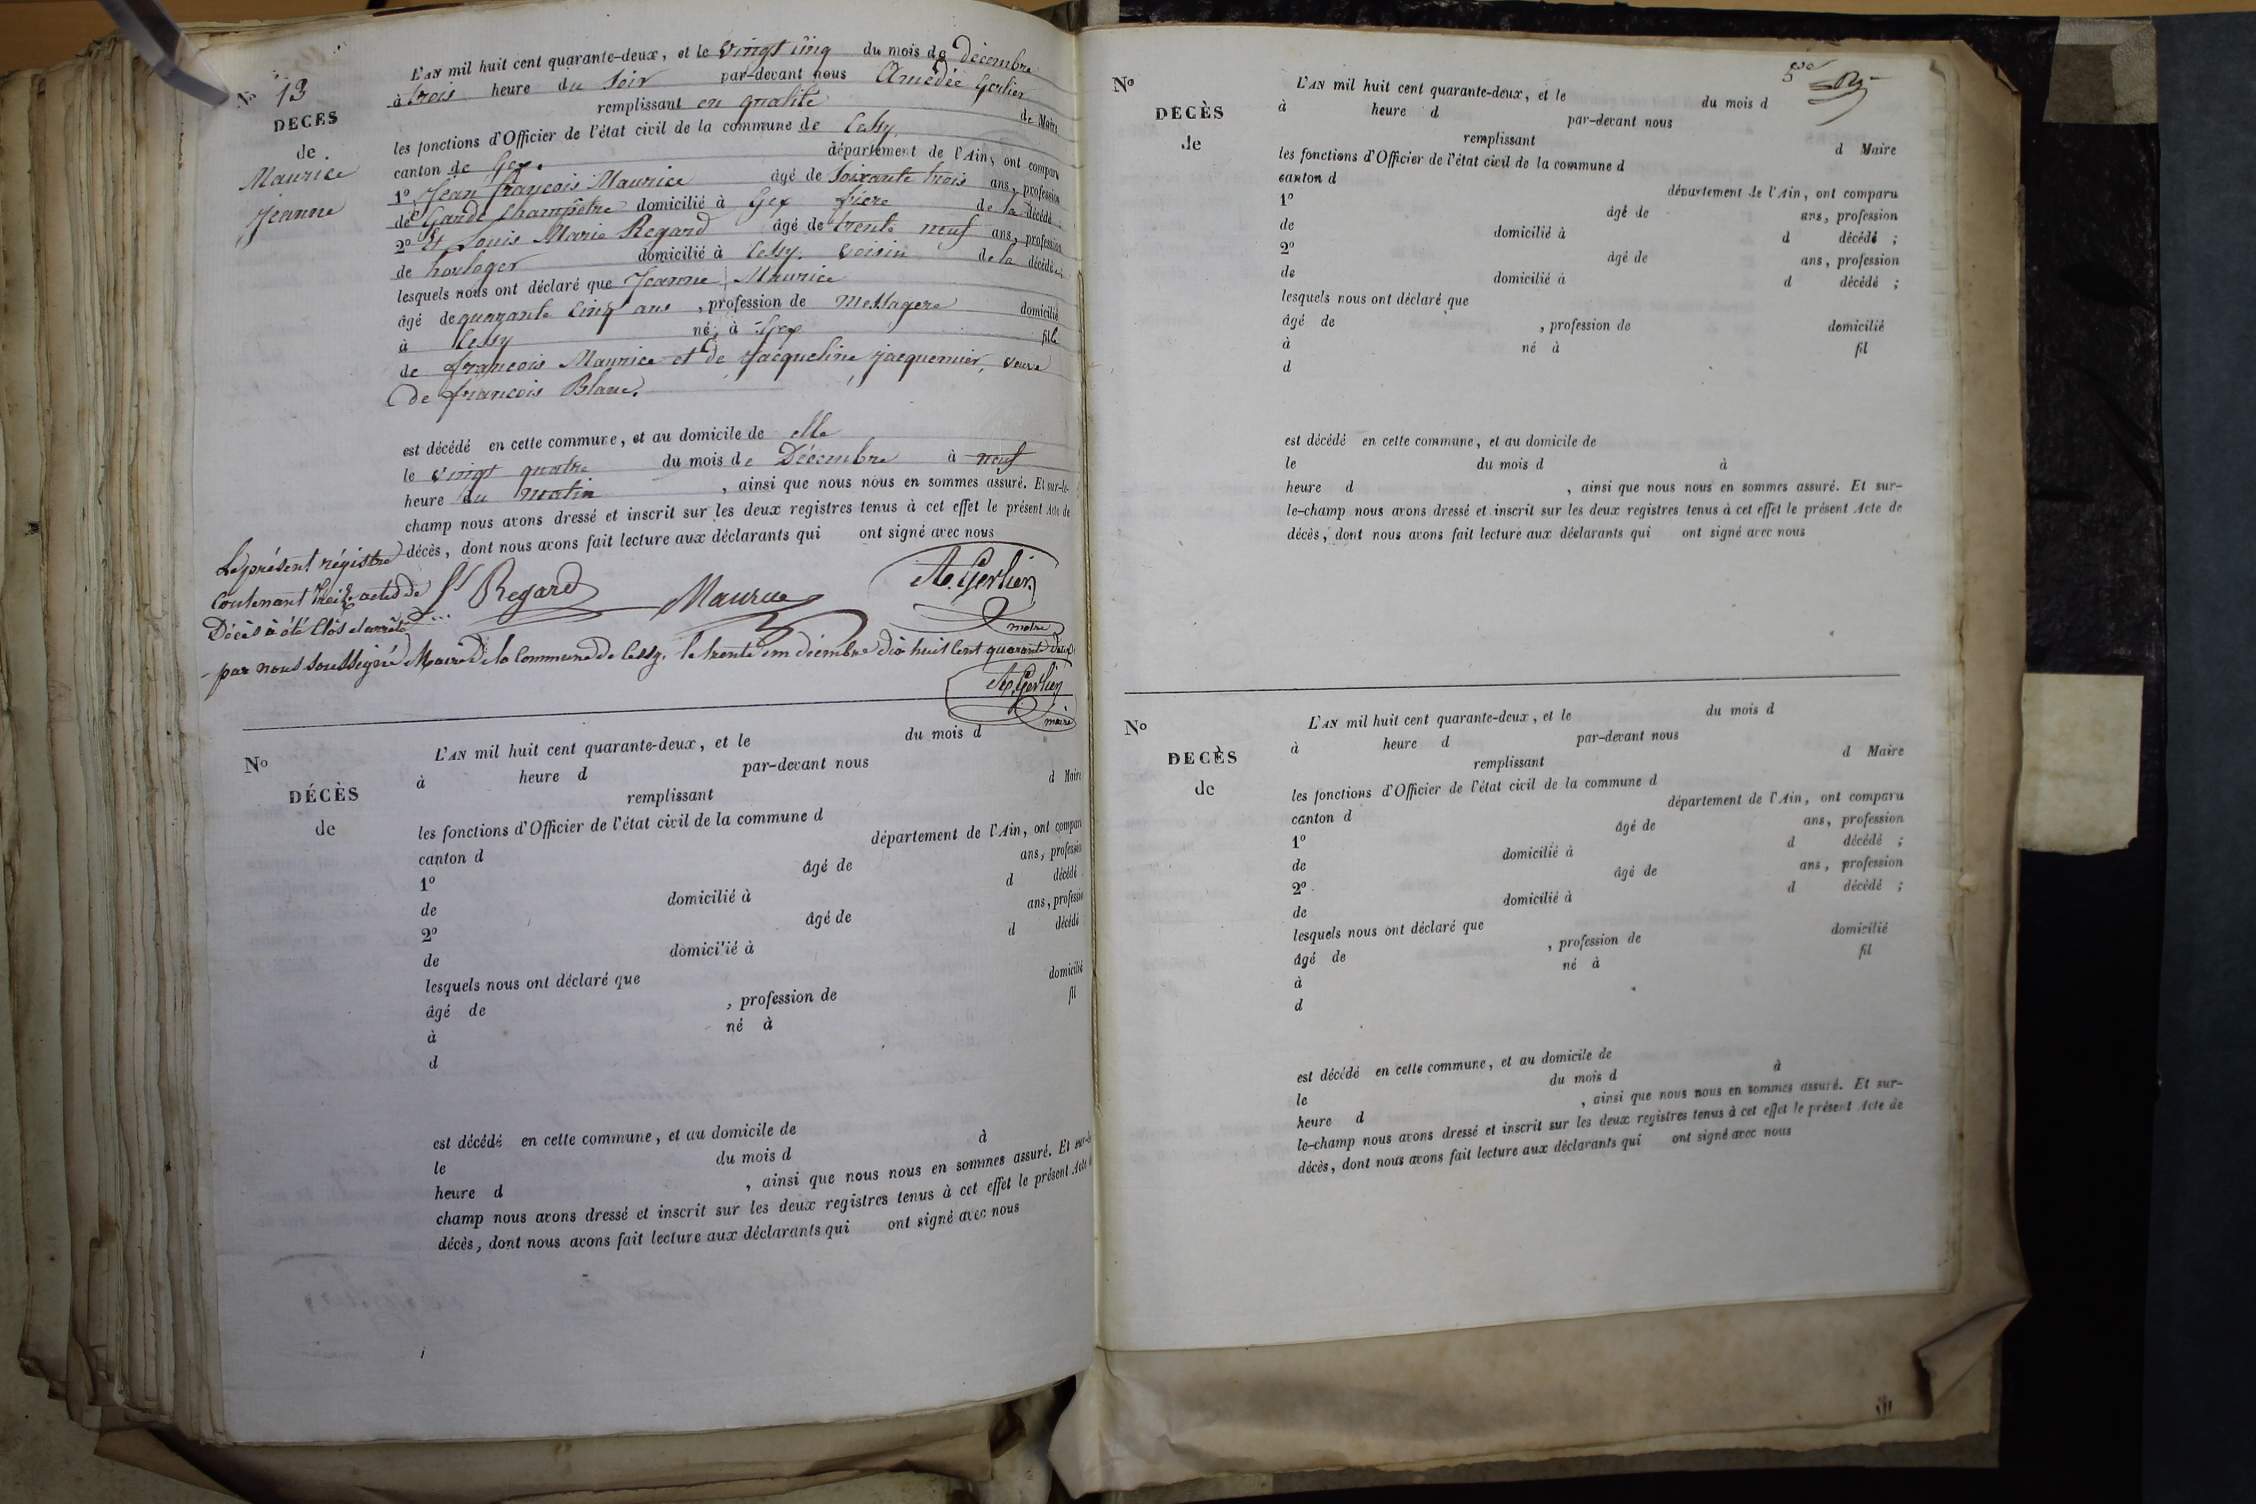 No 13
DECÈS
de
Maurice
Jeanne
L'AN mil huit cent quarante-deux, et le vingt cinq du mois de décembre
à trois heure du Soir par-devant nous Amédée Gerlier
remplissant en qualité de Maire
les fonctions d'Officier de l'état civil de la commune de Cessy
canton de Gex. département de l'Ain, ont comparu
1o Jean françois Maurice âgé de Soixante trois ans, profession
de Garde Champêtre domicilié à Gex frère de la décédé
2o Et Louis Marie Regard âgé de trente neuf ans, profession
de horloger domicilié à Cessy voisin de la décédée
lesquels nous ont déclaré que Jeanne Maurice
âgé de quarante Cinq ans , profession de Messagere domicilié
à Cessy né à Gex fille
de françois Maurice et de Jacqueline jacquemier, veuve
De françois Blanc.
est décédé en cette commune, et au domicile de elle
le vingt quatre du mois de Décembre à neuf
heure du matin , ainsi que nous nous en sommes assuré. Et sur-le-
champ nous avons dressé et inscrit sur les deux registres tenus à cet effet le présent Acte de
décès, dont nous avons fait lecture aux déclarants qui ont signé avec nous
Regard Maurice A. Gerlier
maire
Le présent régistre
Contenant treize actes de
Décès à été Clôs et arrêté
par nous soussigné Maire de la Commune de Cessy, le trente un décembre dix huit Cent quarante deux
A. Gerlier
maire
No
DÉCÈS
de
L'AN mil huit cent quarante-deux, et le du mois d
à heure d par-devant nous
remplissant d Maire
les fonctions d'Officier de l'état civil de la commune d
canton d département de l'Ain, ont comparu
1o âgé de ans, profession
de domicilié à d décédé
2o âgé de ans, profession
de domici'ié à d décédé
lesquels nous ont déclaré que
âgé de , profession de domicilié
à né à fil
d
est décédé en cette commune, et au domicile de
le du mois d à
heure d , ainsi que nous nous en sommes assuré. Et sur-le-
champ nous avons dressé et inscrit sur les deux registres tenus à cet effet le présent Acte de
décès, dont nous avons fait lecture aux déclarants qui ont signé avec nous
No
DECÈS
de
L'AN mil huit cent quarante-deux, et le du mois d
à heure d par-devant nous
remplissant d Maire
les fonctions d'Officier de l'état civil de la commune d
canton d département de l'Ain, ont comparu
1o âgé de ans, profession
de domicilié à d décédé ;
2o âgé de ans, profession
de domicilié à d décédé ;
lesquels nous ont déclaré que
âgé de , profession de domicilié
à né à fil
d
est décédé en cette commune, et au domicile de
le du mois d à
heure d , ainsi que nous nous en sommes assuré. Et sur-
le-champ nous avons dressé et inscrit sur les deux registres tenus à cet effet le présent Acte de
décès, dont nous avons fait lecture aux déclarants qui ont signé avec nous
No
DECÈS
de
L'AN mil huit cent quarante-deux, et le du mois d
à heure d par-devant nous
remplissant d Maire
les fonctions d'Officier de l'état civil de la commune d
canton d département de l'Ain, ont comparu
1o âgé de ans, profession
de domicilié à d décédé ;
2o âgé de ans, profession
de domicilié à d décédé ;
lesquels nous ont déclaré que
âgé de , profession de domicilié
à né à fil
d
est décédé en cette commune, et au domicile de
le du mois d à
heure d , ainsi que nous nous en sommes assuré. Et sur-
le-champ nous avons dressé et inscrit sur les deux registres tenus à cet effet le présent Acte de
décès, dont nous avons fait lecture aux déclarants qui ont signé avec nous